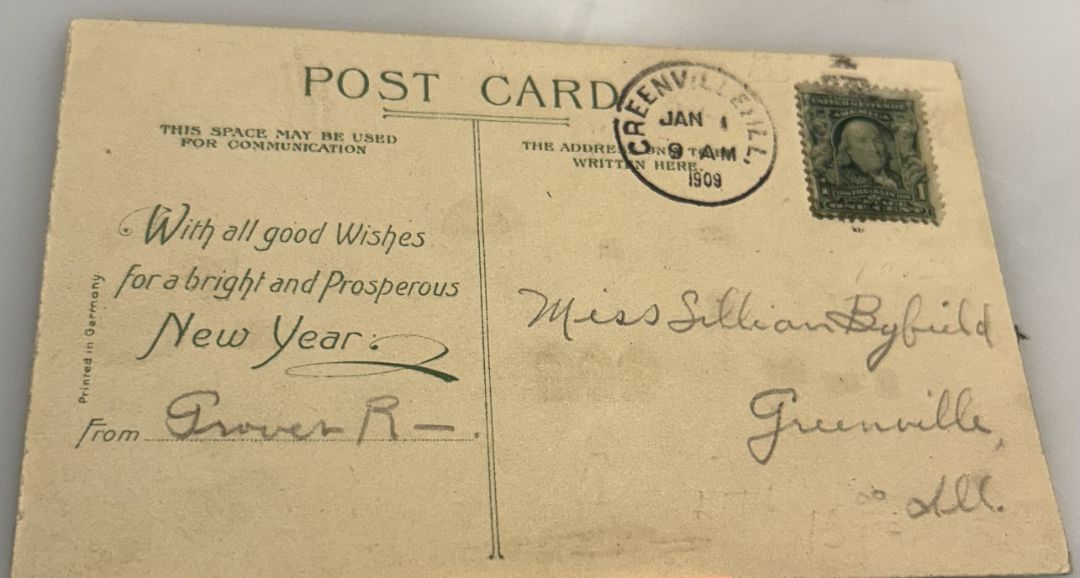 POST CARD
THIS SPACE MAY BE USED
FOR COMMUNICATION
THE ADDRESS ONLY TO BE
WRITTEN HERE.
GREENVILLE, ILL.
JAN 1
9 AM
1909
UNITED STATES OF
AMERICA
FRANKLIN
1 1
ONE CENT
With all good Wishes
for a bright and Prosperous
New Year.
Printed in Germany
From Grover R —.
Miss Lillian Byfield
Greenville,
Ill.